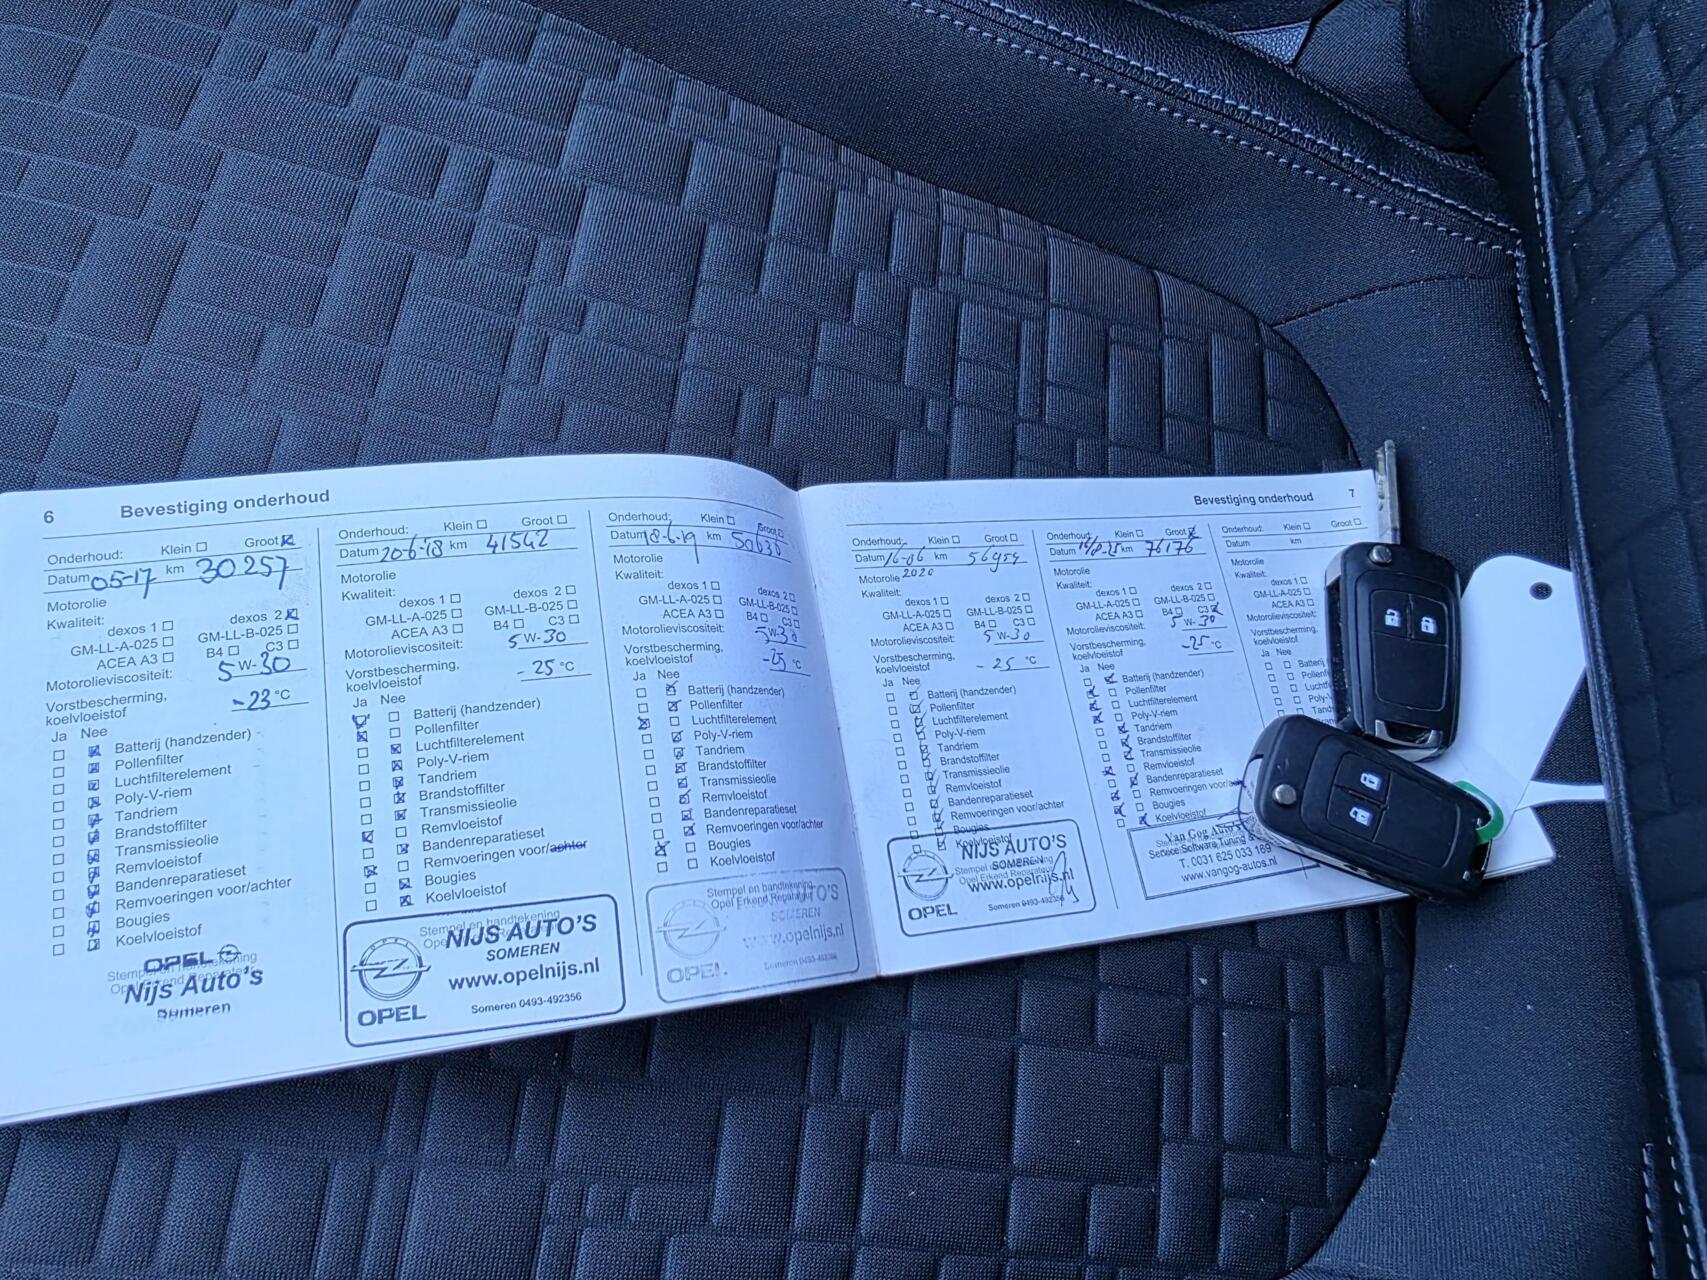 6 Bevestiging onderhoud
Onderhoud: Klein Groot
Datum 05-17 km 30257
Motorolie
Kwaliteit:
dexos 1 dexos 2
GM-LL-A-025 GM-LL-B-025
ACEA A3 B4 C3
Motorolieviscositeit: 5 W-30
Vorstbescherming,
koelvloeistof -23 °C
Ja Nee
Batterij (handzender)
Pollenfilter
Luchtfilterelement
Poly-V-riem
Tandriem
Brandstoffilter
Transmissieolie
Remvloeistof
Bandenreparatieset
Remvoeringen voor/achter
Bougies
Koelvloeistof
OPEL
Nijs Auto's
Someren
Onderhoud: Klein Groot
Datum 20-6-'18 km 41542
Motorolie
Kwaliteit:
dexos 1 dexos 2
GM-LL-A-025 GM-LL-B-025
ACEA A3 B4 C3
Motorolieviscositeit: 5 W-30
Vorstbescherming,
koelvloeistof -25 °C
Ja Nee
Batterij (handzender)
Pollenfilter
Luchtfilterelement
Poly-V-riem
Tandriem
Brandstoffilter
Transmissieolie
Remvloeistof
Bandenreparatieset
Remvoeringen voor/achter
Bougies
Koelvloeistof
Stempel en handtekening
NIJS AUTO'S
SOMEREN
www.opelnijs.nl
OPEL Someren 0493-492356
Onderhoud: Klein Groot
Datum 18-6-19 km
Motorolie
Kwaliteit:
dexos 1 dexos 2
GM-LL-A-025 GM-LL-B-025
ACEA A3 B4 C3
Motorolieviscositeit: 5 W-30
Vorstbescherming,
koelvloeistof -25 °C
Ja Nee
Batterij (handzender)
Pollenfilter
Luchtfilterelement
Poly-V-riem
Tandriem
Brandstoffilter
Transmissieolie
Remvloeistof
Bandenreparatieset
Remvoeringen voor/achter
Bougies
Koelvloeistof
Stempel en handtekening
Opel Erkend Reparateur
SOMEREN
www.opelnijs.nl
OPEL Someren 0493-492356
Bevestiging onderhoud 7
Onderhoud: Klein Groot
Datum 16-06 km 56954
Motorolie 2020
Kwaliteit:
dexos 1 dexos 2
GM-LL-A-025 GM-LL-B-025
ACEA A3 B4 C3
Motorolieviscositeit: 5 W-30
Vorstbescherming,
koelvloeistof -25 °C
Ja Nee
Batterij (handzender)
Pollenfilter
Luchtfilterelement
Poly-V-riem
Tandriem
Brandstoffilter
Transmissieolie
Remvloeistof
Bandenreparatieset
Remvoeringen voor/achter
Bougies
Koelvloeistof
NIJS AUTO'S
SOMEREN
Opel Erkend Reparateur
www.opelnijs.nl
OPEL Someren 0493-492356
Onderhoud: Klein Groot
Datum km 76176
Motorolie
Kwaliteit:
dexos 1 dexos 2
GM-LL-A-025 GM-LL-B-025
ACEA A3 B4 C3
Motorolieviscositeit: 5 W-30
Vorstbescherming,
koelvloeistof -25 °C
Ja Nee
Batterij (handzender)
Pollenfilter
Luchtfilterelement
Poly-V-riem
Tandriem
Brandstoffilter
Transmissieolie
Remvloeistof
Bandenreparatieset
Remvoeringen voor/
Bougies
Koelvloeistof
Van Gog Auto's
Service Software Tuning &
T. 0031 625 033 169
www.vangog-autos.nl
Onderhoud: Klein Groot
Datum km
Motorolie
Kwaliteit:
dexos 1
GM-LL-A-025
ACEA A3
Motorolieviscositeit:
Vorstbescherming,
koelvloeistof
Ja Nee